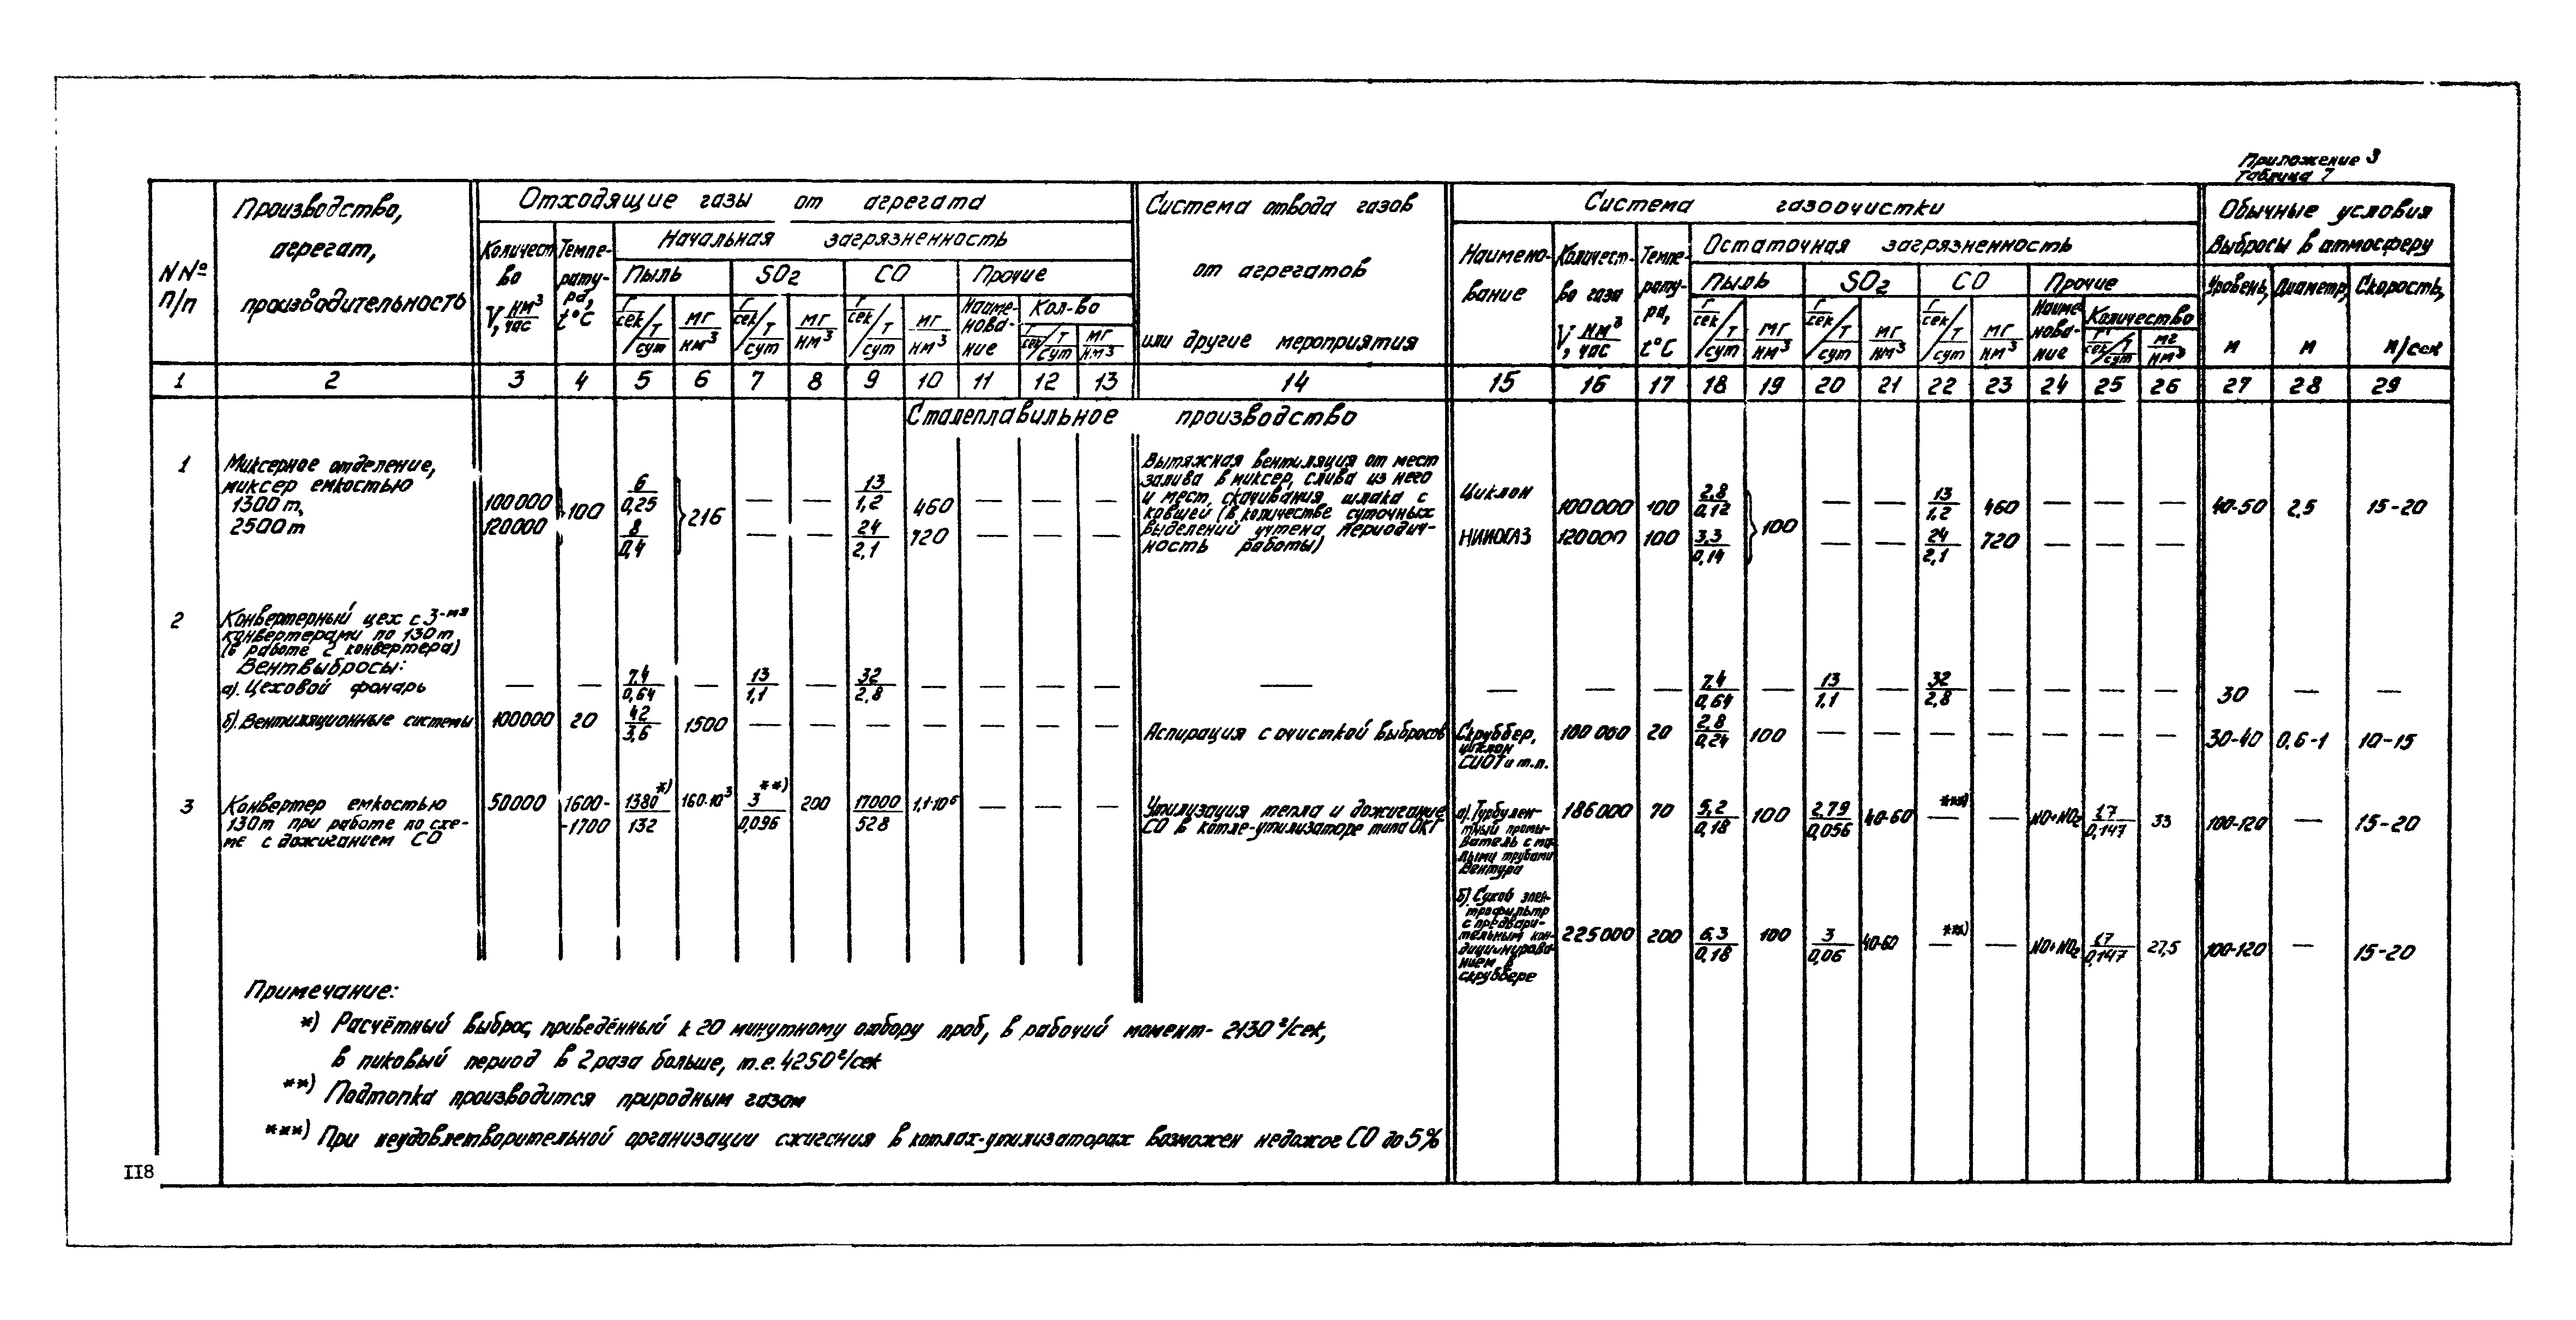 Приложение 3
Таблица 7
NNº п/п
Производство, агрегат, производительность
Отходящие газы от агрегата
Количество V, нм³/час
Температура, t°C
Начальная загрязненность
Пыль
SO₂
CO
Прочие
г/сек / т/сут
мг/нм³
г/сек / т/сут
мг/нм³
г/сек / т/сут
мг/нм³
Наименование
Кол-во
г/сек / т/сут
мг/нм³
Система отвода газов
от агрегатов
или другие мероприятия
Система газоочистки
Наименование
Количество газа V, нм³/час
Температура, t°C
Остаточная загрязненность
Пыль
SO₂
CO
Прочие
г/сек / т/сут
мг/нм³
г/сек / т/сут
мг/нм³
г/сек / т/сут
мг/нм³
Наименование
Количество
г/сек / т/сут
мг/нм³
Обычные условия
Выбросы в атмосферу
Уровень, м
Диаметр, м
Скорость, м/сек
1 2 3 4 5 6 7 8 9 10 11 12 13 14 15 16 17 18 19 20 21 22 23 24 25 26 27 28 29
Сталеплавильное производство
1 Миксерное отделение,
миксер емкостью
1300 т,
2500 т
100000 100 6/0,25 216 — — 13/1,2 460 — — —
120000 8/0,4 — — 24/2,1 720 — — —
Вытяжная вентиляция от мест
залива в миксер, слива из него
и мест, скачивания шлака с
ковшей (в количестве суточных
выделений учтена периодич-
ность работы)
Циклон 100000 100 2,8/0,12 100 — — 13/1,2 460 — — — 40-50 2,5 15-20
НИИОГАЗ 120000 100 3,3/0,14 — — 24/2,1 720 — — —
2 Конвертерный цех с 3-мя
конвертерами по 130 т
(в работе 2 конвертера)
Вентвыбросы:
а). Цеховой фонарь — — 7,4/0,64 — 13/1,1 — 32/2,8 — — — — — — — — 7,4/0,64 — 13/1,1 — 32/2,8 — — — — 30 — —
б). Вентиляционные системы 100000 20 42/3,6 1500 — — — — — — — Аспирация с очисткой выбросов
Скруббер,
циклон
СИОТ и т.п.
100000 20 2,8/0,24 100 — — — — — — — 30-40 0,6-1 10-15
3 Конвертер емкостью
130т при работе по схе-
ме с дожиганием CO
50000 1600-
-1700
1380*)/132 160·10³ 3**)/0,096 200 17000/528 1,1·10⁶ — — —
Утилизация тепла и дожигание
CO в котле-утилизаторе типа ОКГ
а). Турбулен-
тный промы-
ватель с ма-
лыми трубами
Вентура
186000 70 5,2/0,18 100 2,79/0,056 40-60 —***) — NO+NO₂ 1,7/0,147 33 100-120 — 15-20
б) Сухой элек-
трофильтр
с предвари-
тельным кон-
диционирова-
нием в
скруббере
225000 200 6,3/0,18 100 3/0,06 40-60 —**) — NO+NO₂ 1,7/0,147 27,5 100-120 — 15-20
Примечание:
*) Расчётный выброс, приведённый к 20 минутному отбору проб, в рабочий момент- 2130 г/сек,
в пиковый период в 2 раза больше, т.е. 4250 г/сек
**) Подтопка производится природным газом
***) При неудовлетворительной организации сжигания в котлах-утилизаторах возможен недожог CO до 5%
II8